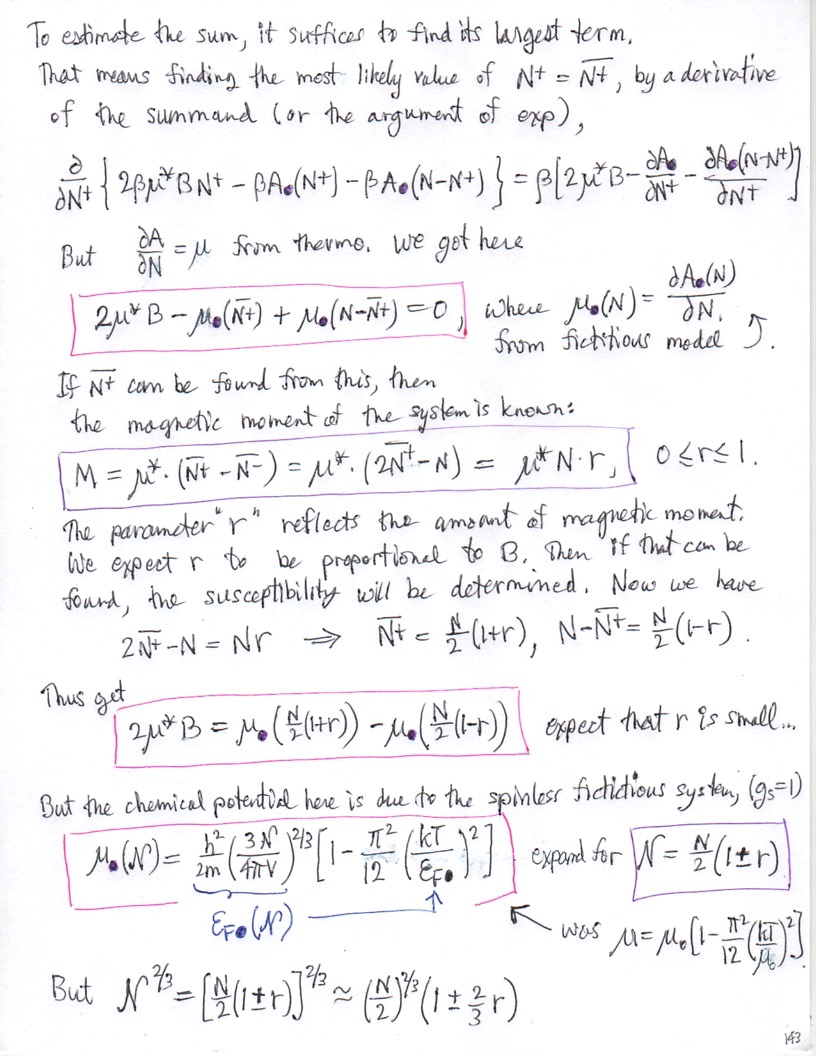 To estimate the sum, it suffices to find its largest term.
That means finding the most likely value of N⁺ = N̄⁺, by a derivative
of the summand (or the argument of exp),
∂/∂N⁺ { 2βμ*BN⁺ − βA₀(N⁺) − βA₀(N−N⁺) } = β[2μ*B − ∂A₀/∂N⁺ − ∂A₀(N−N⁺)/∂N⁺]
But ∂A/∂N = μ from thermo. We got here
2μ*B − μ₀(N̄⁺) + μ₀(N−N̄⁺) = 0, where μ₀(N) = ∂A₀(N)/∂N.
from fictitious model ⤴.
If N̄⁺ can be found from this, then
the magnetic moment of the system is known:
M = μ*·(N̄⁺ − N̄⁻) = μ*·(2N̄⁺−N) = μ*N·r, 0 ≤ r ≤ 1.
The parameter "r" reflects the amount of magnetic moment.
We expect r to be proportional to B. Then if that can be
found, the susceptibility will be determined. Now we have
2N̄⁺−N = Nr ⇒ N̄⁺ = N/2 (1+r), N−N̄⁺ = N/2 (1−r).
Thus get
2μ*B = μ₀(N/2(1+r)) − μ₀(N/2(1−r)) expect that r is small...
But the chemical potential here is due to the spinless fictictious system, (gs=1)
μ₀(𝒩) = h²/2m (3𝒩/4πV)^2/3 [1 − π²/12 (kT/ε_F₀)²] expand for 𝒩 = N/2 (1±r)
ε_F₀(𝒩)
was μ = μ₀[1 − π²/12 (kT/μ₀)²].
But 𝒩^2/3 = [N/2(1±r)]^2/3 ≈ (N/2)^2/3 (1 ± 2/3 r)
143